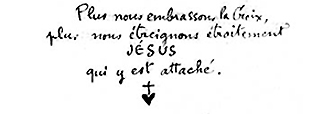 Plus nous embrassons la Croix,
plus nous étreignons étroitement
JÉSUS
qui y est attaché.